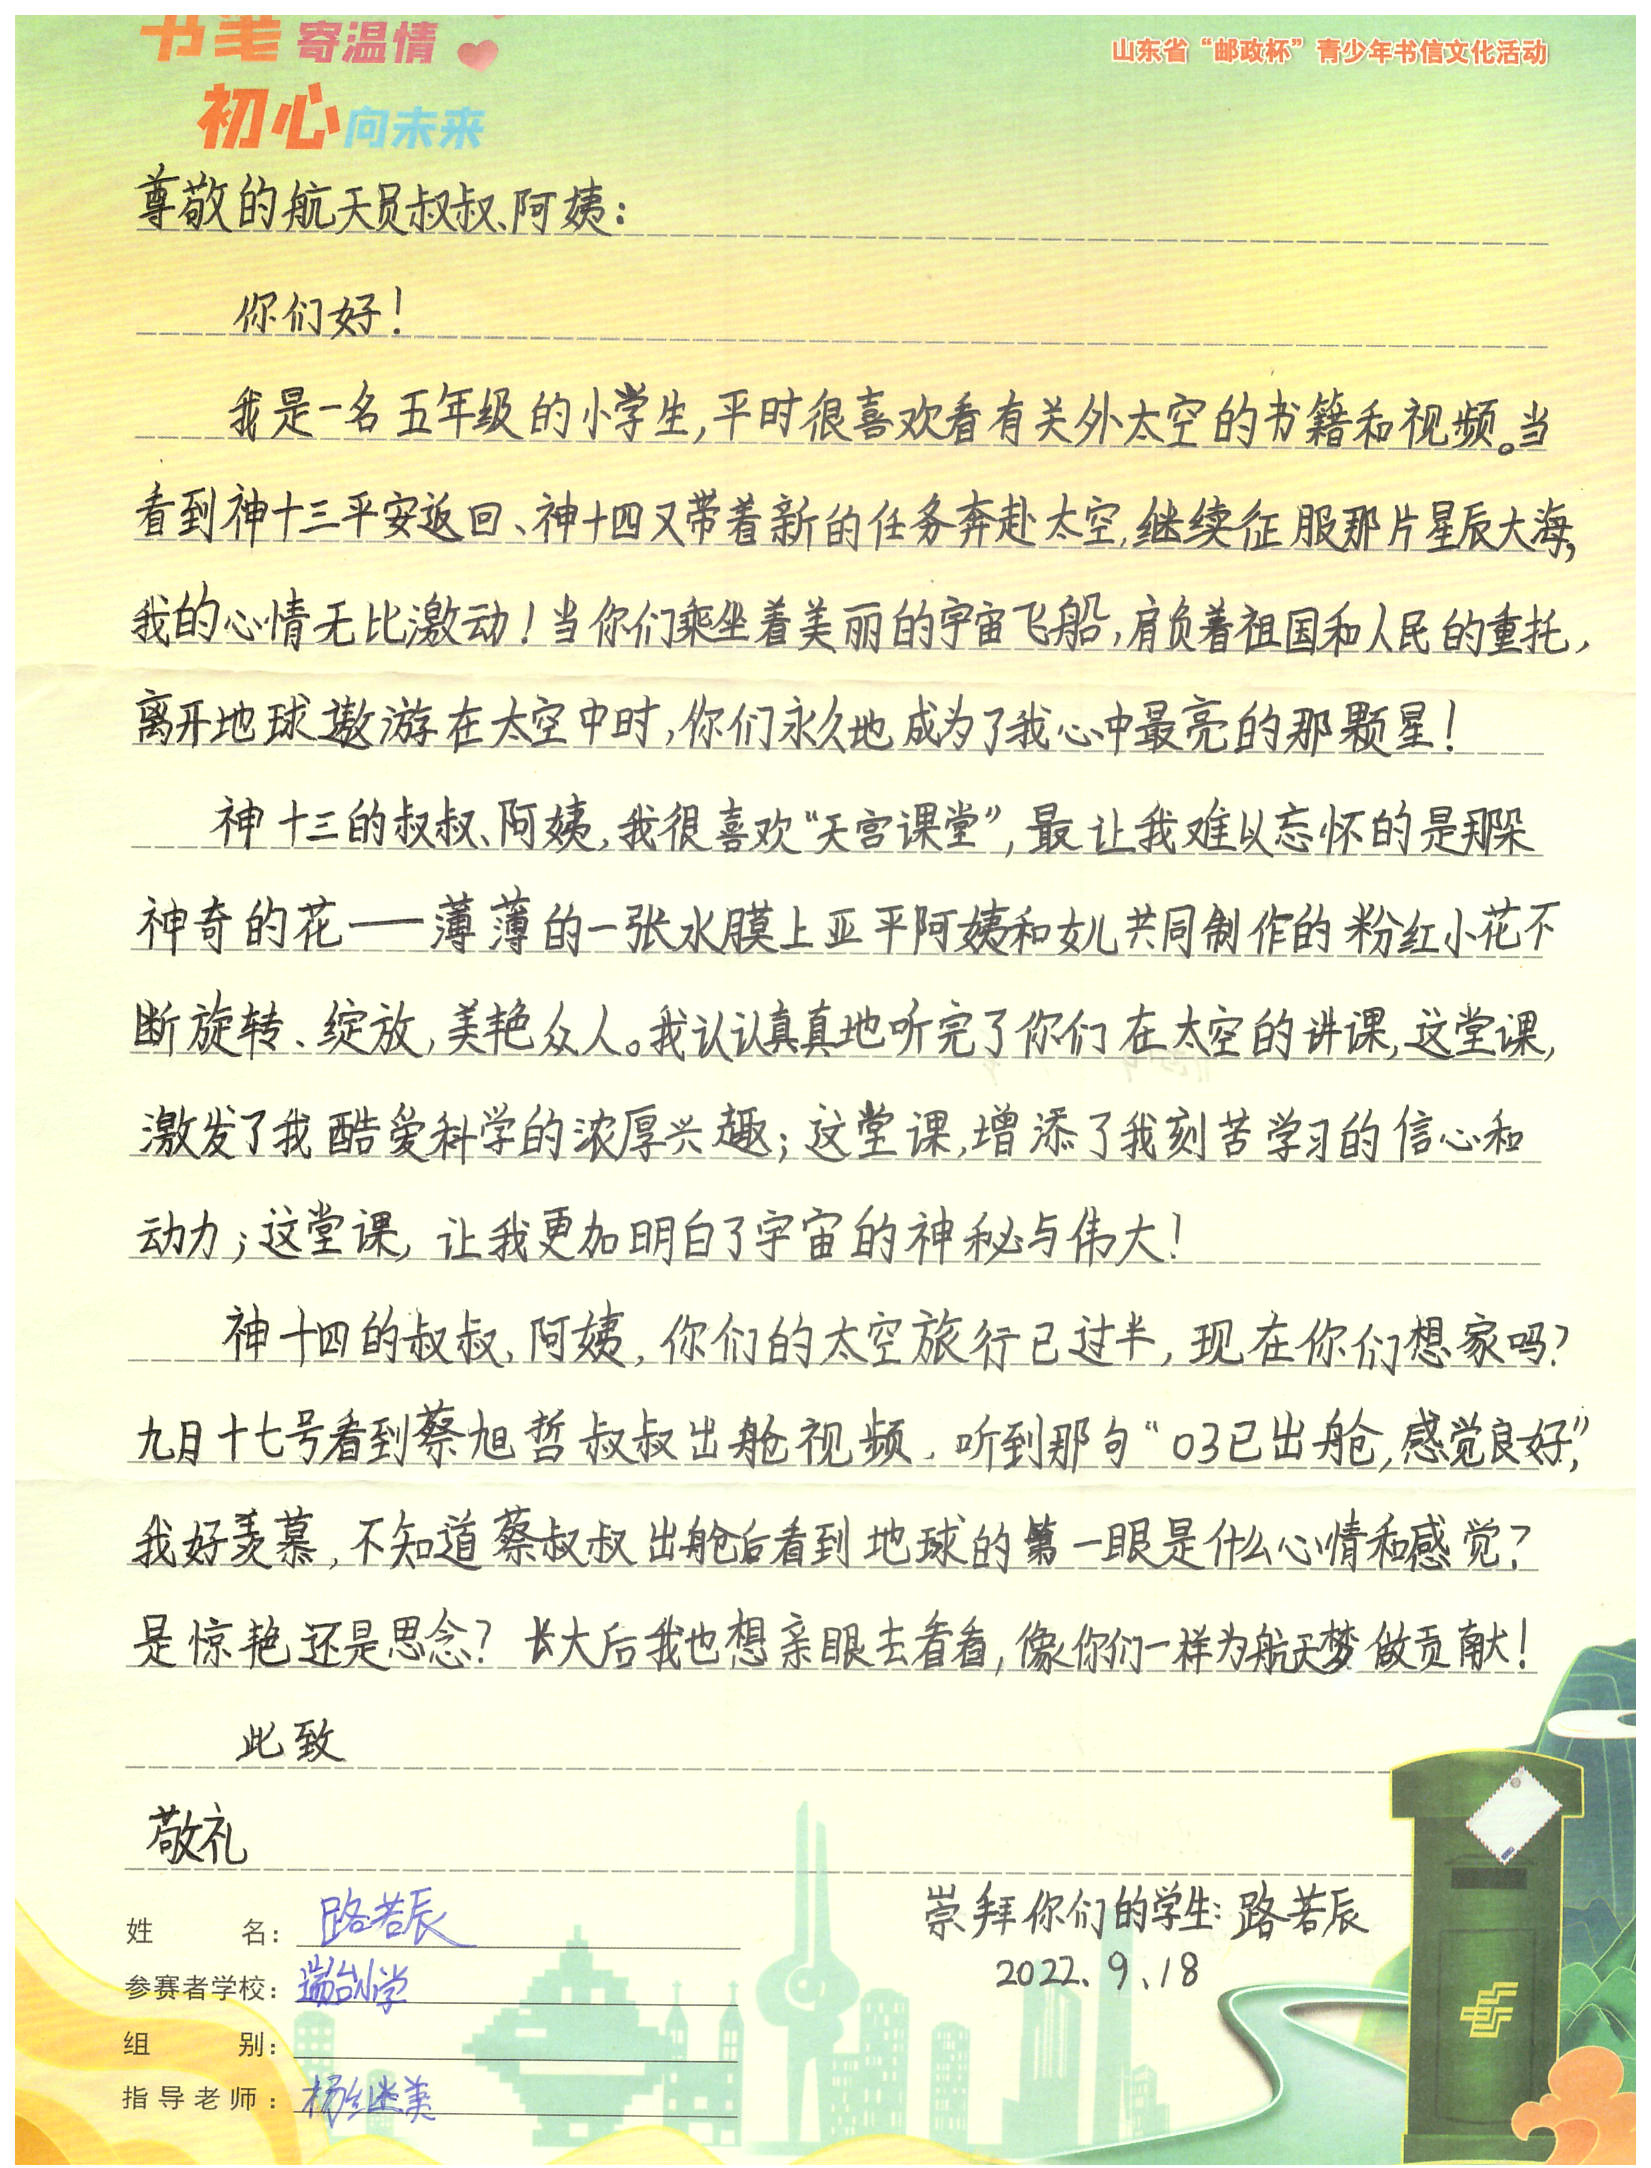 书笔寄温情
山东省“邮政杯”青少年书信文化活动
初心向未来
尊敬的航天员叔叔、阿姨:
你们好!
我是一名五年级的小学生,平时很喜欢看有关外太空的书籍和视频。当
看到神十三平安返回、神十四又带着新的任务奔赴太空,继续征服那片星辰大海,
我的心情无比激动!当你们乘坐着美丽的宇宙飞船,肩负着祖国和人民的重托,
离开地球遨游在太空中时,你们永久地成为了我心中最亮的那颗星!
神十三的叔叔、阿姨,我很喜欢“天宫课堂”,最让我难以忘怀的是那朵
神奇的花——薄薄的一张水膜上亚平阿姨和女儿共同制作的粉红小花不
断旋转、绽放,美艳众人。我认认真真地听完了你们在太空的讲课,这堂课,
激发了我酷爱科学的浓厚兴趣;这堂课,增添了我刻苦学习的信心和
动力;这堂课,让我更加明白了宇宙的神秘与伟大!
神十四的叔叔、阿姨,你们的太空旅行已过半,现在你们想家吗?
九月十七号看到蔡旭哲叔叔出舱视频,听到那句“03已出舱,感觉良好”,
我好羡慕,不知道蔡叔叔出舱后看到地球的第一眼是什么心情和感觉?
是惊艳还是思念?长大后我也想亲眼去看看,像你们一样为航天梦做贡献!
此致
敬礼
崇拜你们的学生:路若辰
2022.9.18
姓名:路若辰
参赛者学校:瑞台小学
组别:
指导老师:杨继美